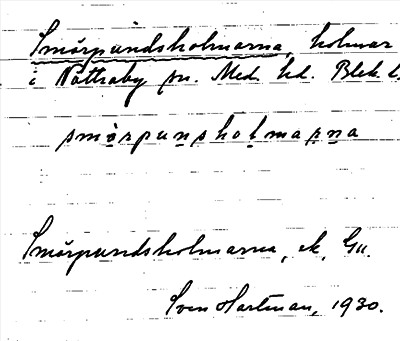 Smörpundsholmarna, holmar
i Nättraby sn. Med. hd. Blek. l.
smörpunsholmarna
Smörpundsholmarna, ek, Gu.
Sven Hartman, 1930.